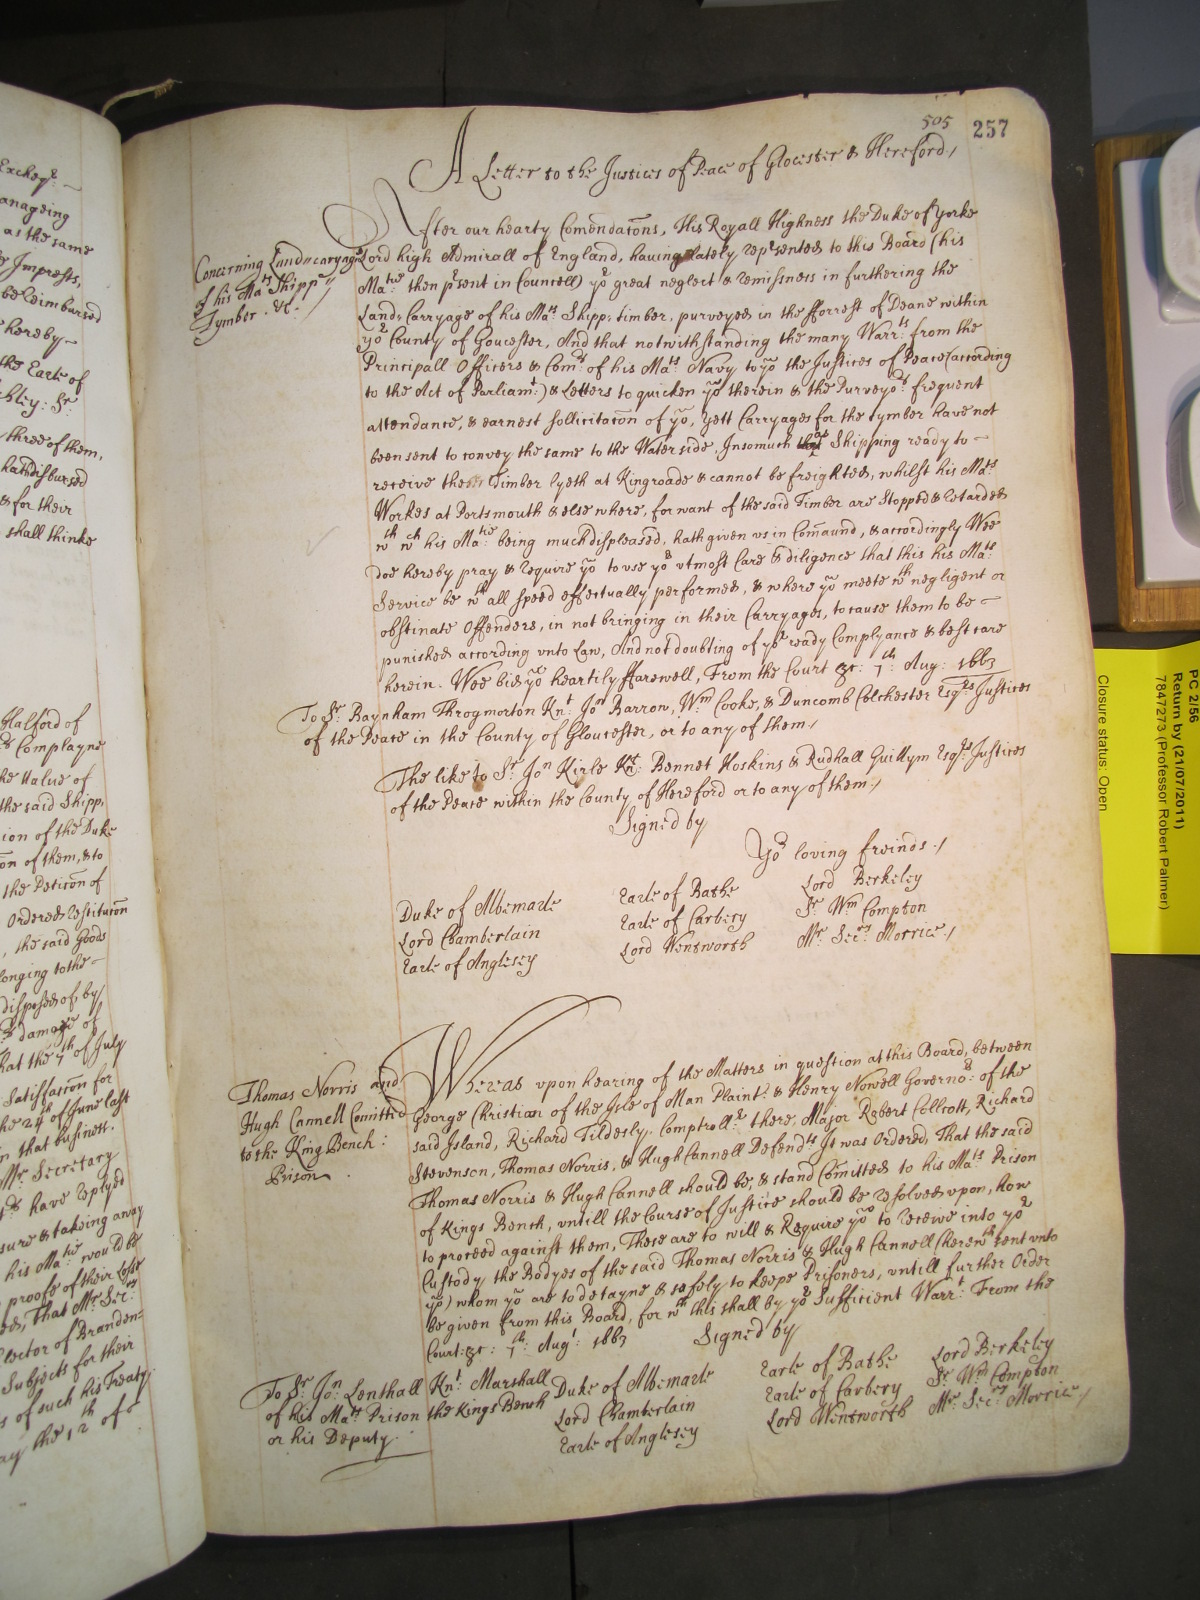 505
257
A Letter to the Justices of Peace of Glocester & Hereford/
After our hearty Comendatons, His Royall Highness the Duke of Yorke
Concerning Land=caryage
of his Mats Shipp
Tymber &c./
Lord high Admirall of England, having lately represented to this Board (his
Matie then psent in Councell) ye great neglect & remissness in furthering the
Land-Carryage of his Mats Shipp-timber, purveyed in the fforrest of Deane within
ye County of Gloucester, And that notwithstanding the many Warrts from the
Principall Officers & Comrs of his Mats Navy to yo the Justices of Peace (according
to the Act of Parliamt) & Letters to quicken yo therein & the Purveyors frequent
attendance, & earnest sollicitaton of yo, yett Carryages for the tymber have not
been sent to convey the same to the Water side, Insomuch as Shipping ready to
receive the Timber lyeth at Kingroade & cannot be freighted, whilst his Mats
Workes at Portsmouth & else where, for want of the said Timber are Stopped & retarded
wth wch his Matie being much displeased, hath given vs in Comaund, & accordingly Wee
doe hereby pray & require yo to vse yor vtmost Care & diligence that this his Mats
Service be wth all speed effectually performed, & where yo meete wth negligent or
obstinate Offenders, in not bringing in their Carryages, to cause them to be
punished according vnto Law, And not doubting of yor ready Complyance & best care
herein. Wee bid yo heartily ffarewell, From the Court &c: 7th Aug: 1663
To Sr Baynham Throgmorton Knt Jon Barrow, Wm Cooke, & Duncomb Colchester Esqrs Justices
of the Peace in the County of Gloucester, or to any of them/
The like to Sr Jon Kirle Knt Bennet Hoskins & Rudhall Guillym Esqrs Justices
of the Peace within the County of Hereford or to any of them/
Signed by
Yor loving freinds./
Duke of Albemarle
Earle of Bathe
Lord Berkeley
Lord Chamberlain
Earle of Carbery
Sr Wm Compton
Earle of Anglesey
Lord Wentworth
Mr Secry Morrice./
Thomas Norris and
Hugh Cannell Comitted
to the King Bench:
Prison
Whereas vpon hearing of the Matters in question at this Board, between
George Christian of the Isle of Man Plaint: & Henry Nowell Governor of the
said Island, Richard Tildesly Comptrollr there, Major Robert Collcott, Richard
Stevenson, Thomas Norris, & Hugh Cannell Defendts It was Ordered, That the said
Thomas Norris & Hugh Cannell should be, & stand Comitted to his Mats Prison
of Kings Bench, vntill the Course of Justice should be resolved vpon, how
to proceed against them, These are to will & Require yo to receive into yor
Custody, the Bodyes of the said Thomas Norris & Hugh Cannell (herewth sent vnto
yo) whom yo are to detayne & safely to keepe Prisoners, vntill further Order
be given from this Board, for wch this shall by yor Sufficient Warrt From the
Court &c: 7th Augt 1663
Signed by
To Sr Jon Lenthall Knt Marshall
of his Mats Prison the Kings Bench
or his Deputy.
Duke of Albemarle
Earle of Bathe
Lord Berkeley
Lord Chamberlain
Earle of Carbery
Sr Wm Compton
Earle of Anglesey
Lord Wentworth
Mr Secry Morrice./
Excheqr
anageing
as the same
Impressts,
be reimbursed
hereby
the Earle of
bley: Sr
three of them,
hath disbursed
& for their
shall thinke
Halford of
Complayne
he Value of
the said Shipp,
ion of the Duke
on of them, & to
the Peticon of
Ordered restitucon
the said Goods
longing to the
disposed of, by
damage of
hat the 7th of July
Satisfaccon for
he 24th of June last
n that business.
Mr Secretary
have replyed
sure & takeing away
his Matie would be
proofe of their Losse
ed, That Mr Secry
lector of Branden=
Subjects for their
s of such his Treaty
ay the 12th of
PC 2/56
Return by (21/07/2011)
7847273 (Professor Robert Palmer)
Closure status: Open